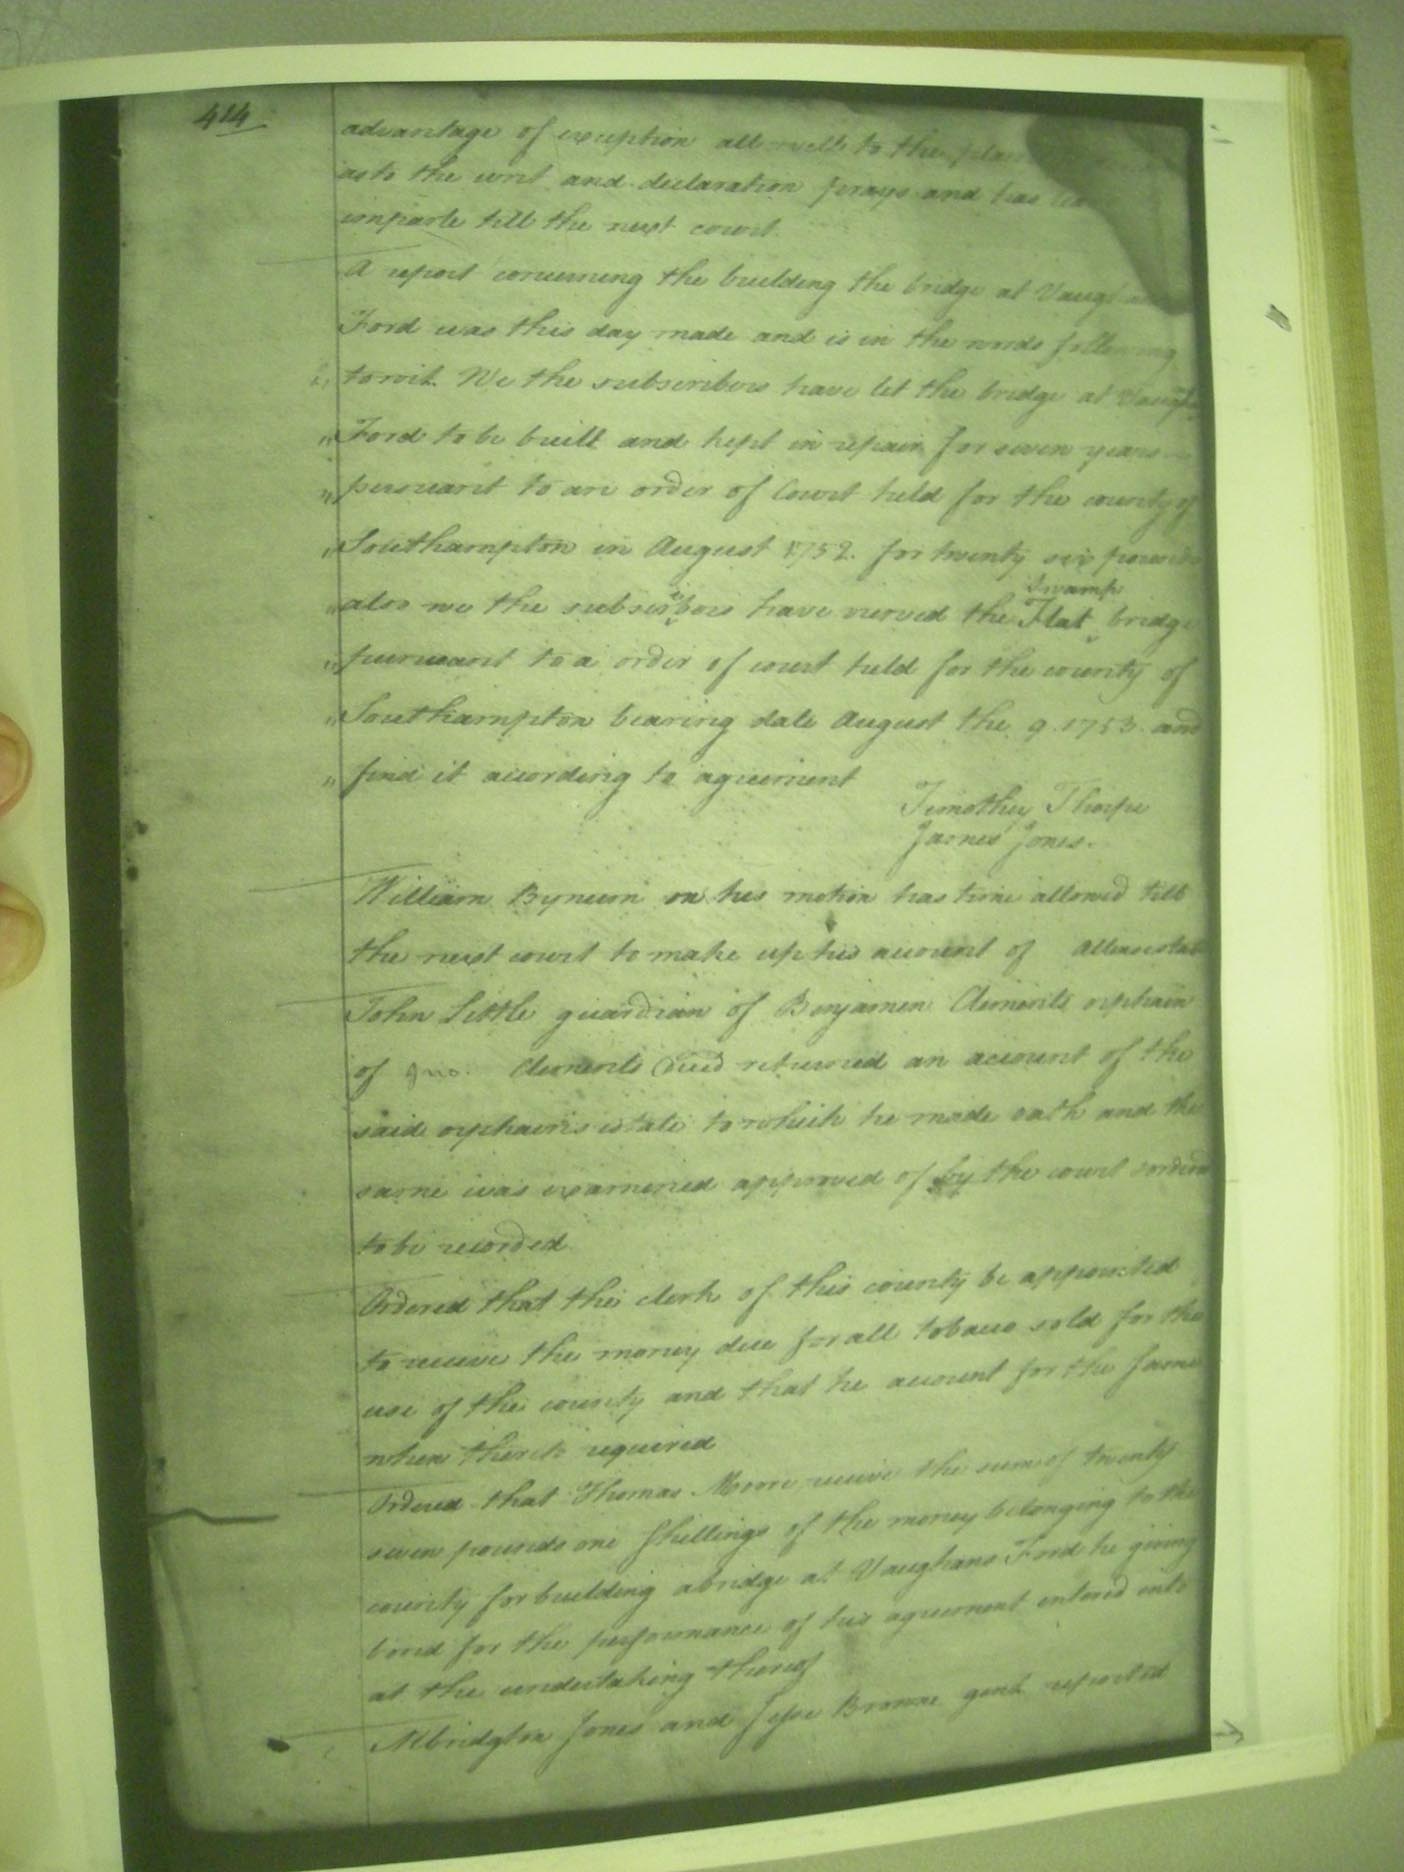 414
advantage of exception all well to the
as to the writ and declaration prays and has
imparle till the next court.
A report concerning the building the bridge at Vaughans
Ford was this day made and is in the words following
towit. We the subscribers have let the bridge at Vaughs
" Ford to be built and kept in repair for seven years
" persuant to an order of Court held for the county of
" Southampton in August 1752. for twenty six pounds
Swamp
" also we the subscribers have viewed the Flat bridge
" pursuant to a order of court held for the county of
" Southampton bearing date August the 9. 1753. and
" find it according to agreement
Timothy Thorpe
James Jones.
William Bynum on his motion has time allowed till
the next court to make up his account of
John Little guardian of Benjamin Clements orphan
of Jno. Clements Deced returned an account of the
said orphan's estate to which he made oath and the
same was examined approved of by the court & ordered
to be recorded
Ordered that the clerk of this county be appointed
to receive the money due for all tobacco sold for the
use of the county and that he account for the same
when thereto required
Ordered that Thomas Moore receive the sum of twenty
seven pounds one shillings of the money belonging to the
county for building a bridge at Vaughans Ford he giving
bond for the performance of his agreement entered into
at the undertaking thereof
Albridgton Jones and Jesse Browne gent reported